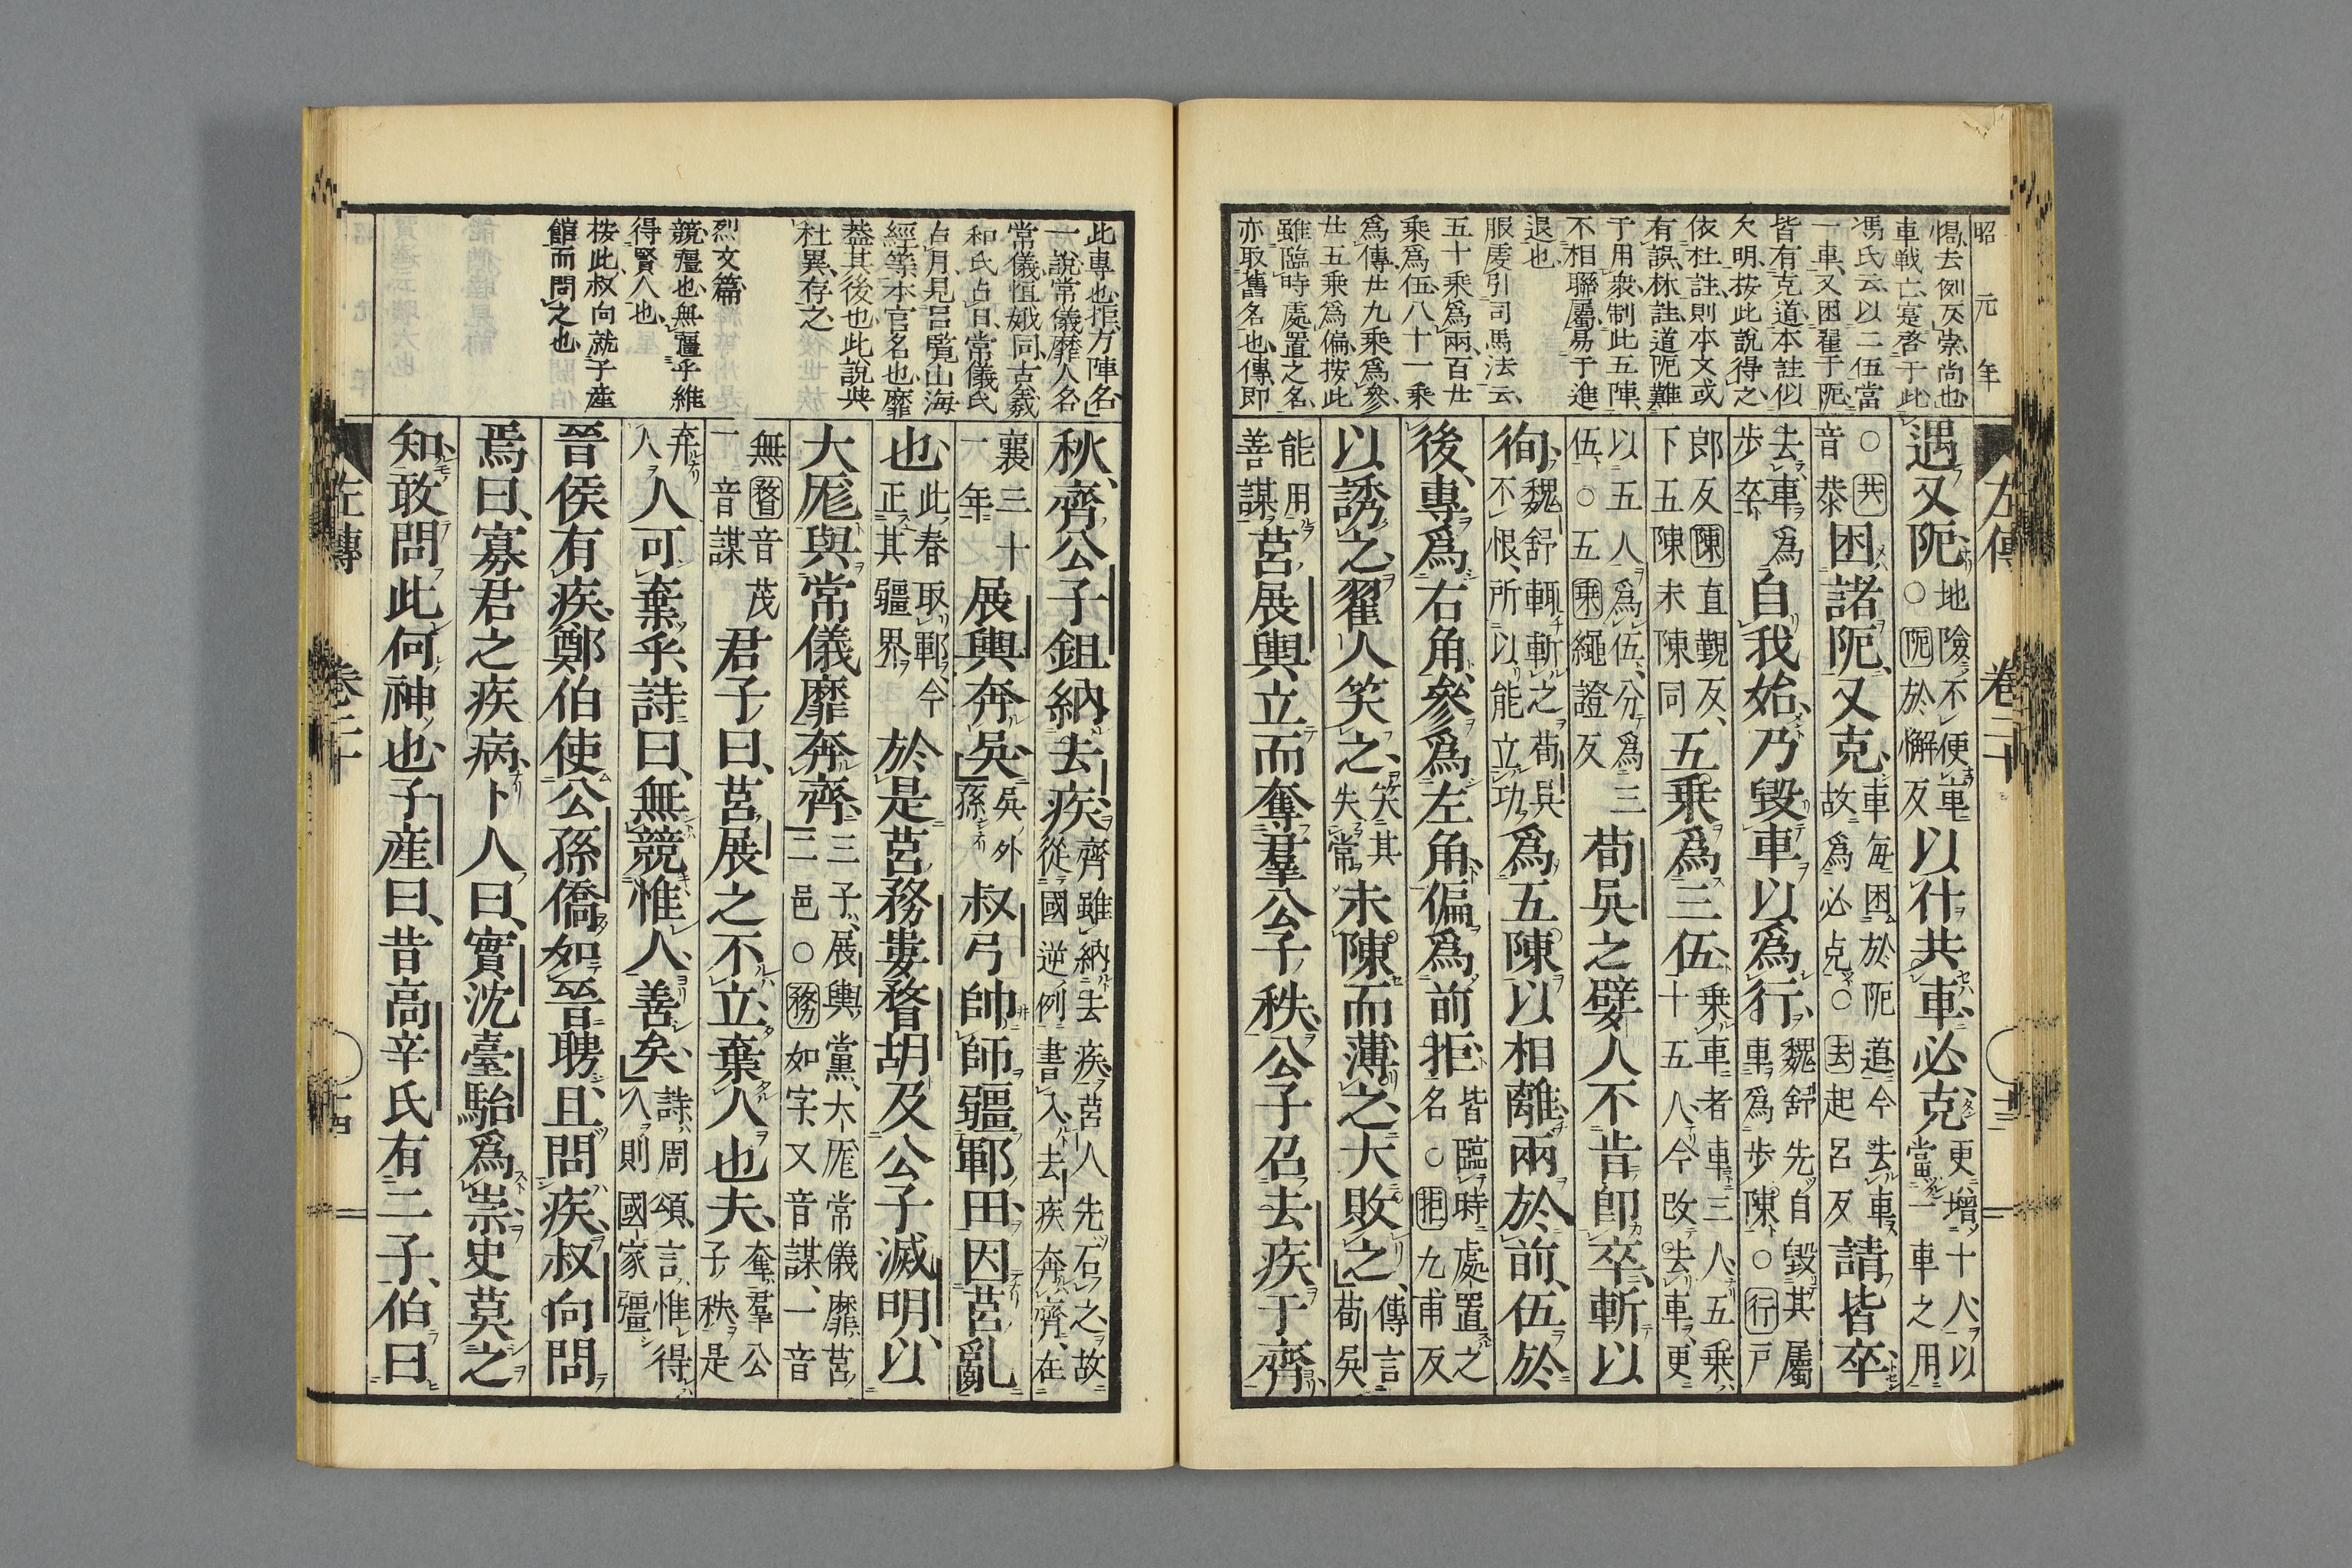 昭元年
惕去例反、崇、尚也、
車戰亡、寔啓于此
馮氏云、以二伍當
一車、又困翟于阨
皆有克道、本註似
欠明、按此說得之
依杜註、則本文或
有誤、林註、道阨難
于用衆、制此五陣、
不相聯屬、易于進
退也
服虔引司馬法云、
五十乘爲兩、百廿
乘爲伍、八十一乘
爲傳、廿九乘爲參、
廿五乘爲偏、按此
雖臨時處置之名、
亦取舊名也、傳即
左傳 卷二十 十三
遇又阨、地險不便車○阨於懈反以什共車、必克、更增十人、以當一車之用
○共音恭困諸阨、又克、車每困於阨道、今去車故爲必克○去起呂反請皆卒、
去車爲步卒自我始、乃毀車以爲行、魏舒先自毀其屬車爲步陳○行戶
郎反陳直覲反、下五陳未陳同五乘爲三伍、乘車者車三人、五乘十五人、今改去車、更
以五人爲伍、分爲三伍○五乘繩證反荀吳之嬖人不肯即卒、斬以
徇、魏舒輒斬之荀吳不恨、所以能立功爲五陳以相離、兩於前、伍於
後、專爲右角、參爲左角、偏爲前拒、皆臨時處置之名○拒九甫反
以誘之、翟人笑之、笑其失常未陳而薄之、大敗之、傳言荀吳
能用善謀莒展輿立而奪羣公子秩、公子召去疾于齊、
此專也、拒、方陣名
一說常儀靡人名
常儀恒娥同、古羲
和氏占日、常儀氏
占月、見呂覽山海
經等、本官名也、靡
蓋其後也、此說與
杜異、存之
烈文篇
競、彊也、無彊乎維
得賢人也
按此叔向就子產
館而問之也
秋、齊公子鉏納去疾、齊雖納去疾、莒人先召之、故從國逆例書入、去疾奔齊、在
襄三十一年展輿奔吳、吳外孫叔弓帥師疆鄆田、因莒亂
也、此春取鄆、今正其疆界於是莒務婁瞀胡及公子滅明、以
大厖與常儀靡奔齊、三子、展輿黨、大厖常儀靡、莒二邑○務如字、又音謀、一音
無瞀音茂一音謀君子曰、莒展之不立、棄人也夫、奪羣公子秩、是
弃人人可棄乎、詩曰、無競惟人、善矣、詩周頌、言惟得人、則國家彊
晉侯有疾、鄭伯使公孫僑如晉聘、且問疾、叔向問
焉曰、寡君之疾病、卜人曰、實沈臺駘爲祟、史莫之
知、敢問此何神也、子產曰、昔高辛氏有二子、伯曰
左傳 卷二十 十四